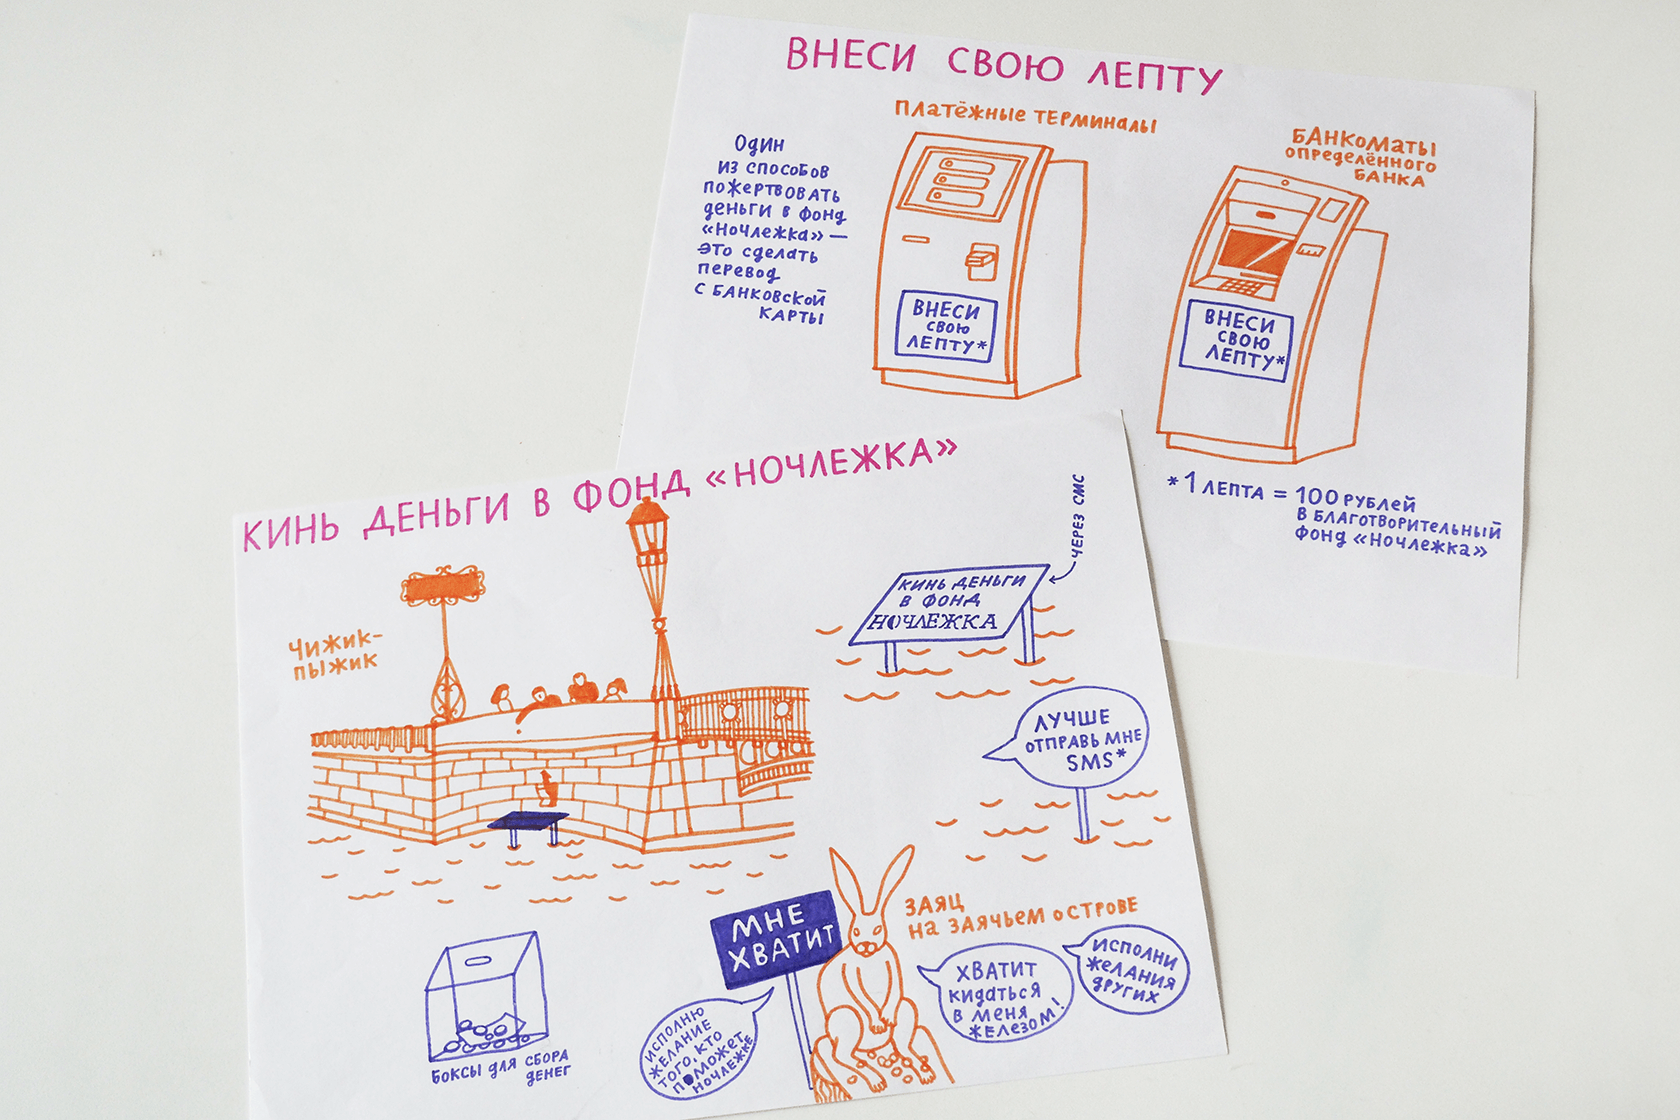 ВНЕСИ СВОЮ ЛЕПТУ
ПЛАТЁЖНЫЕ ТЕРМИНАЛЫ
БАНКОМАТЫ
ОПРЕДЕЛЁННОГО
БАНКА
ОДИН
ИЗ СПОСОБОВ
ПОЖЕРТВОВАТЬ
ДЕНЬГИ В ФОНД
«НОЧЛЕЖКА» —
ЭТО СДЕЛАТЬ
ПЕРЕВОД
С БАНКОВСКОЙ
КАРТЫ
ВНЕСИ
СВОЮ
ЛЕПТУ*
ВНЕСИ
СВОЮ
ЛЕПТУ*
*1 ЛЕПТА = 100 РУБЛЕЙ
В БЛАГОТВОРИТЕЛЬНЫЙ
ФОНД «НОЧЛЕЖКА»
КИНЬ ДЕНЬГИ В ФОНД «НОЧЛЕЖКА»
ЧИЖИК-
ПЫЖИК
ЧЕРЕЗ СМС
КИНЬ ДЕНЬГИ
В ФОНД
НОЧЛЕЖКА
ЛУЧШЕ
ОТПРАВЬ МНЕ
SMS*
БОКСЫ ДЛЯ СБОРА
ДЕНЕГ
МНЕ
ХВАТИТ
ЗАЯЦ
НА ЗАЯЧЬЕМ ОСТРОВЕ
ИСПОЛНЮ
ЖЕЛАНИЕ
ТОГО, КТО
ПОМОЖЕТ
НОЧЛЕЖКЕ
ХВАТИТ
КИДАТЬСЯ
В МЕНЯ
ЖЕЛЕЗОМ!
ИСПОЛНИ
ЖЕЛАНИЯ
ДРУГИХ